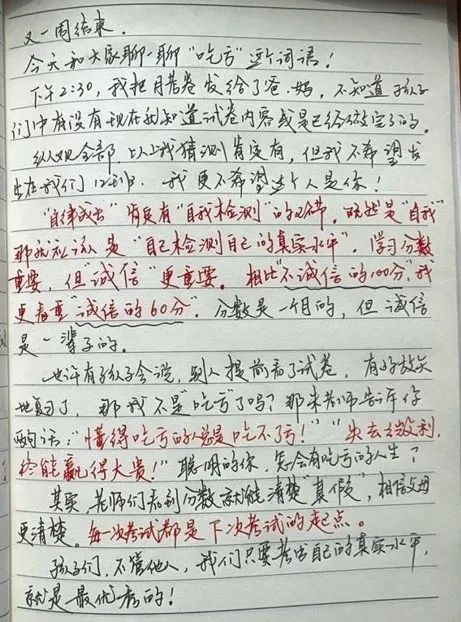 又一周结束。
今天和大家聊一聊“吃亏”这个词语！
下午2:30，我把月考卷发给了爸、妈，不知道孩子
们中有没有现在就知道试卷内容或是已经做完了的。
纵观全部，以上我猜测肯定有，但我不希望发
生在我们班，我更不希望这个人是你！
“自律成长”肯定有“自我检测”的环节。既然是“自我”
那就应该是“自己检测自己的真实水平”。学习分数
重要，但“诚信”更重要。相比“不诚信的100分”，我
更看重“诚信的60分”。分数是一时的，但诚信
是一辈子的。
也许有孩子会说，别人提前看了试卷，有的放矢
地复习了，那我不是“吃亏”了吗？那朱老师告诉你
的话：“懂得吃亏的人总是吃不了亏！”“失去微利，
终能赢得大贵！”聪明的你，怎会有吃亏的人生？
其实，老师们看到分数就能清楚“真假”，相信父母
更清楚。每一次考试都是下次考试的起点。
孩子们，不管他人，我们只要考出自己的真实水平，
就是最优秀的！